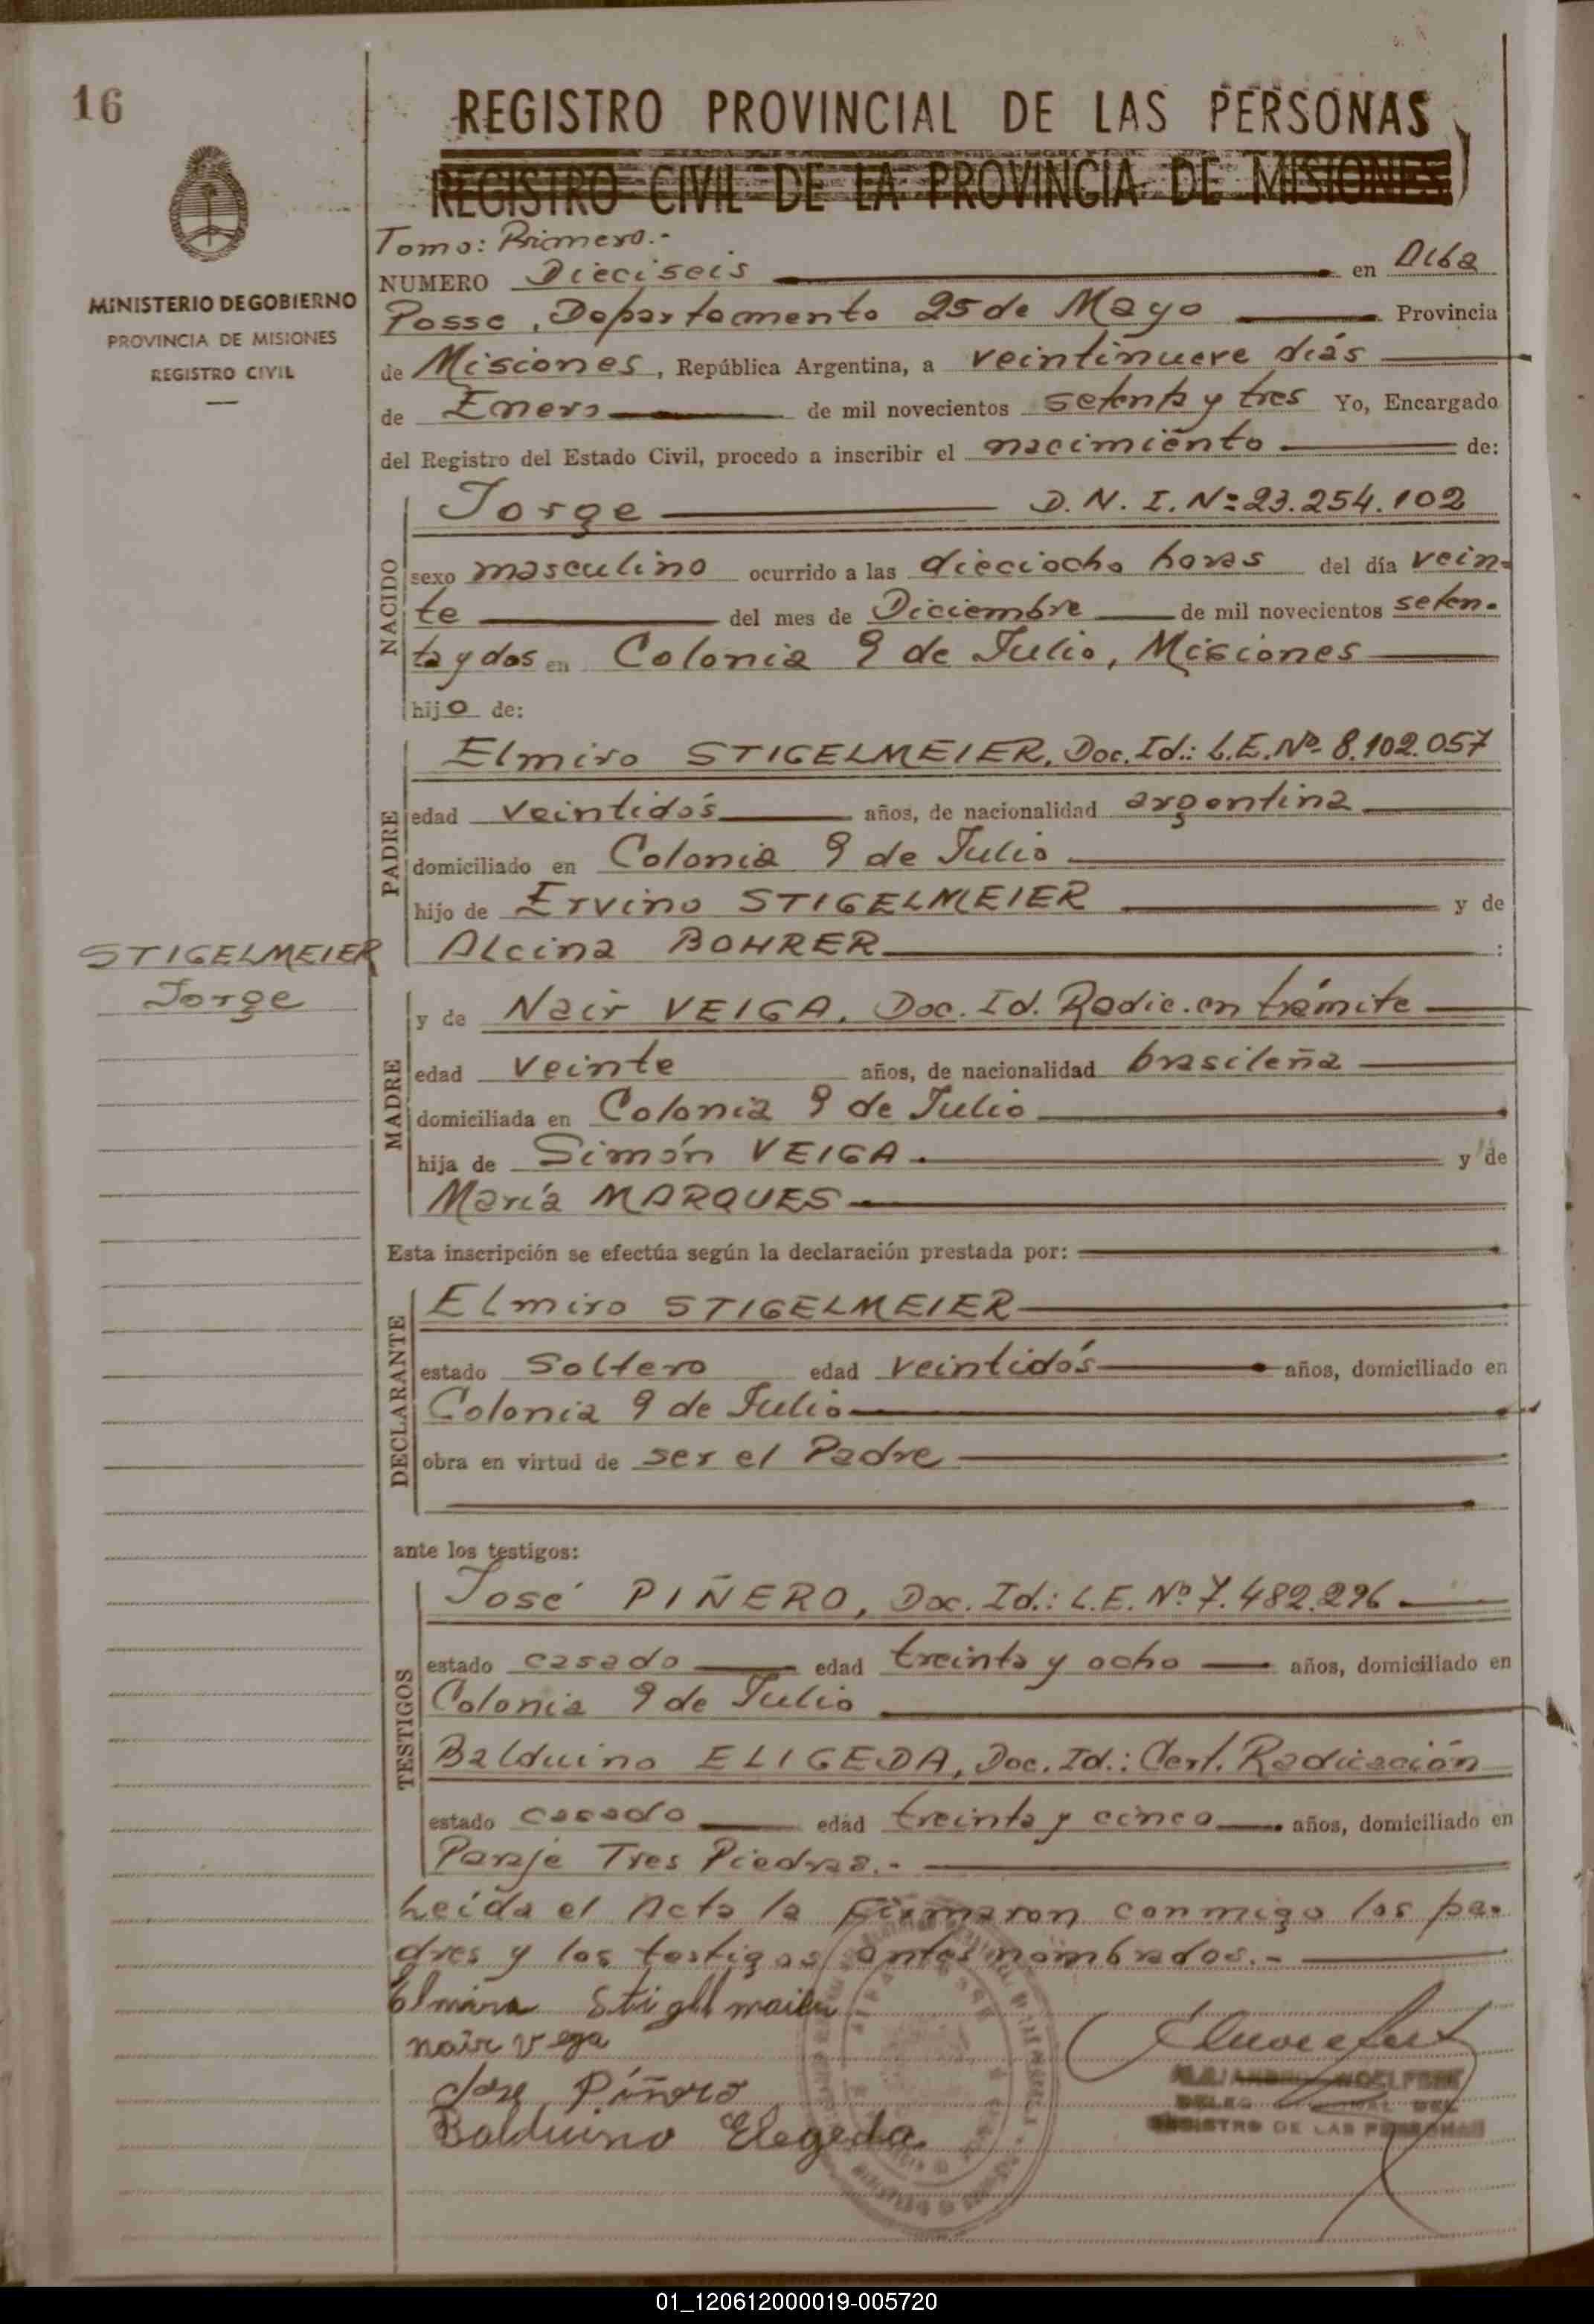 16
REGISTRO PROVINCIAL DE LAS PERSONAS
REGISTRO CIVIL DE LA PROVINCIA DE MISIONES
MINISTERIO DE GOBIERNO
PROVINCIA DE MISIONES
REGISTRO CIVIL
Tomo: Primero.-
NUMERO Dieciseis en Alba
Posse, Departamento 25 de Mayo Provincia
de Misiones, República Argentina, a veintinueve diás
de Enero de mil novecientos setenta y tres Yo, Encargado
del Registro del Estado Civil, procedo a inscribir el nacimiento de:
NACIDO
Jorge D.N.I. Nº 23.254.102
sexo masculino ocurrido a las dieciocho horas del día vein-
te del mes de Diciembre de mil novecientos seten-
ta y dos en Colonia 9 de Julio, Misiones
hijo de:
PADRE
Elmiro STIGELMEIER, Doc. Id.: L.E. Nº 8.102.057
edad veintidós años, de nacionalidad argentina
domiciliado en Colonia 9 de Julio
hijo de Ervino STIGELMEIER y de
Alcina BOHRER :
STIGELMEIER
Jorge
MADRE
y de Nair VEIGA, Doc. Id. Radic. en trámite
edad veinte años, de nacionalidad brasileña
domiciliada en Colonia 9 de Julio
hija de Simón VEIGA. y de
María MARQUES
Esta inscripción se efectúa según la declaración prestada por:
DECLARANTE
Elmiro STIGELMEIER
estado Soltero edad veintidós años, domiciliado en
Colonia 9 de Julio
obra en virtud de ser el Padre
ante los testigos:
TESTIGOS
José PIÑERO, Doc. Id.: L.E. Nº 7.482.296
estado casado edad treinta y ocho años, domiciliado en
Colonia 9 de Julio
Balduino ELIGEDA, Doc. Id.: Cert. Radicación
estado casado edad treinta y cinco años, domiciliado en
Paraje Tres Piedras.-
Leída el Acta la firmaron conmigo los pa-
dres y los testigos antes nombrados.-
Elmiro Stigelmaier
nair vega
Jose Piñero
Balduino Elegeda
REGISTRO DE LAS PERSONAS
01_120612000019-005720